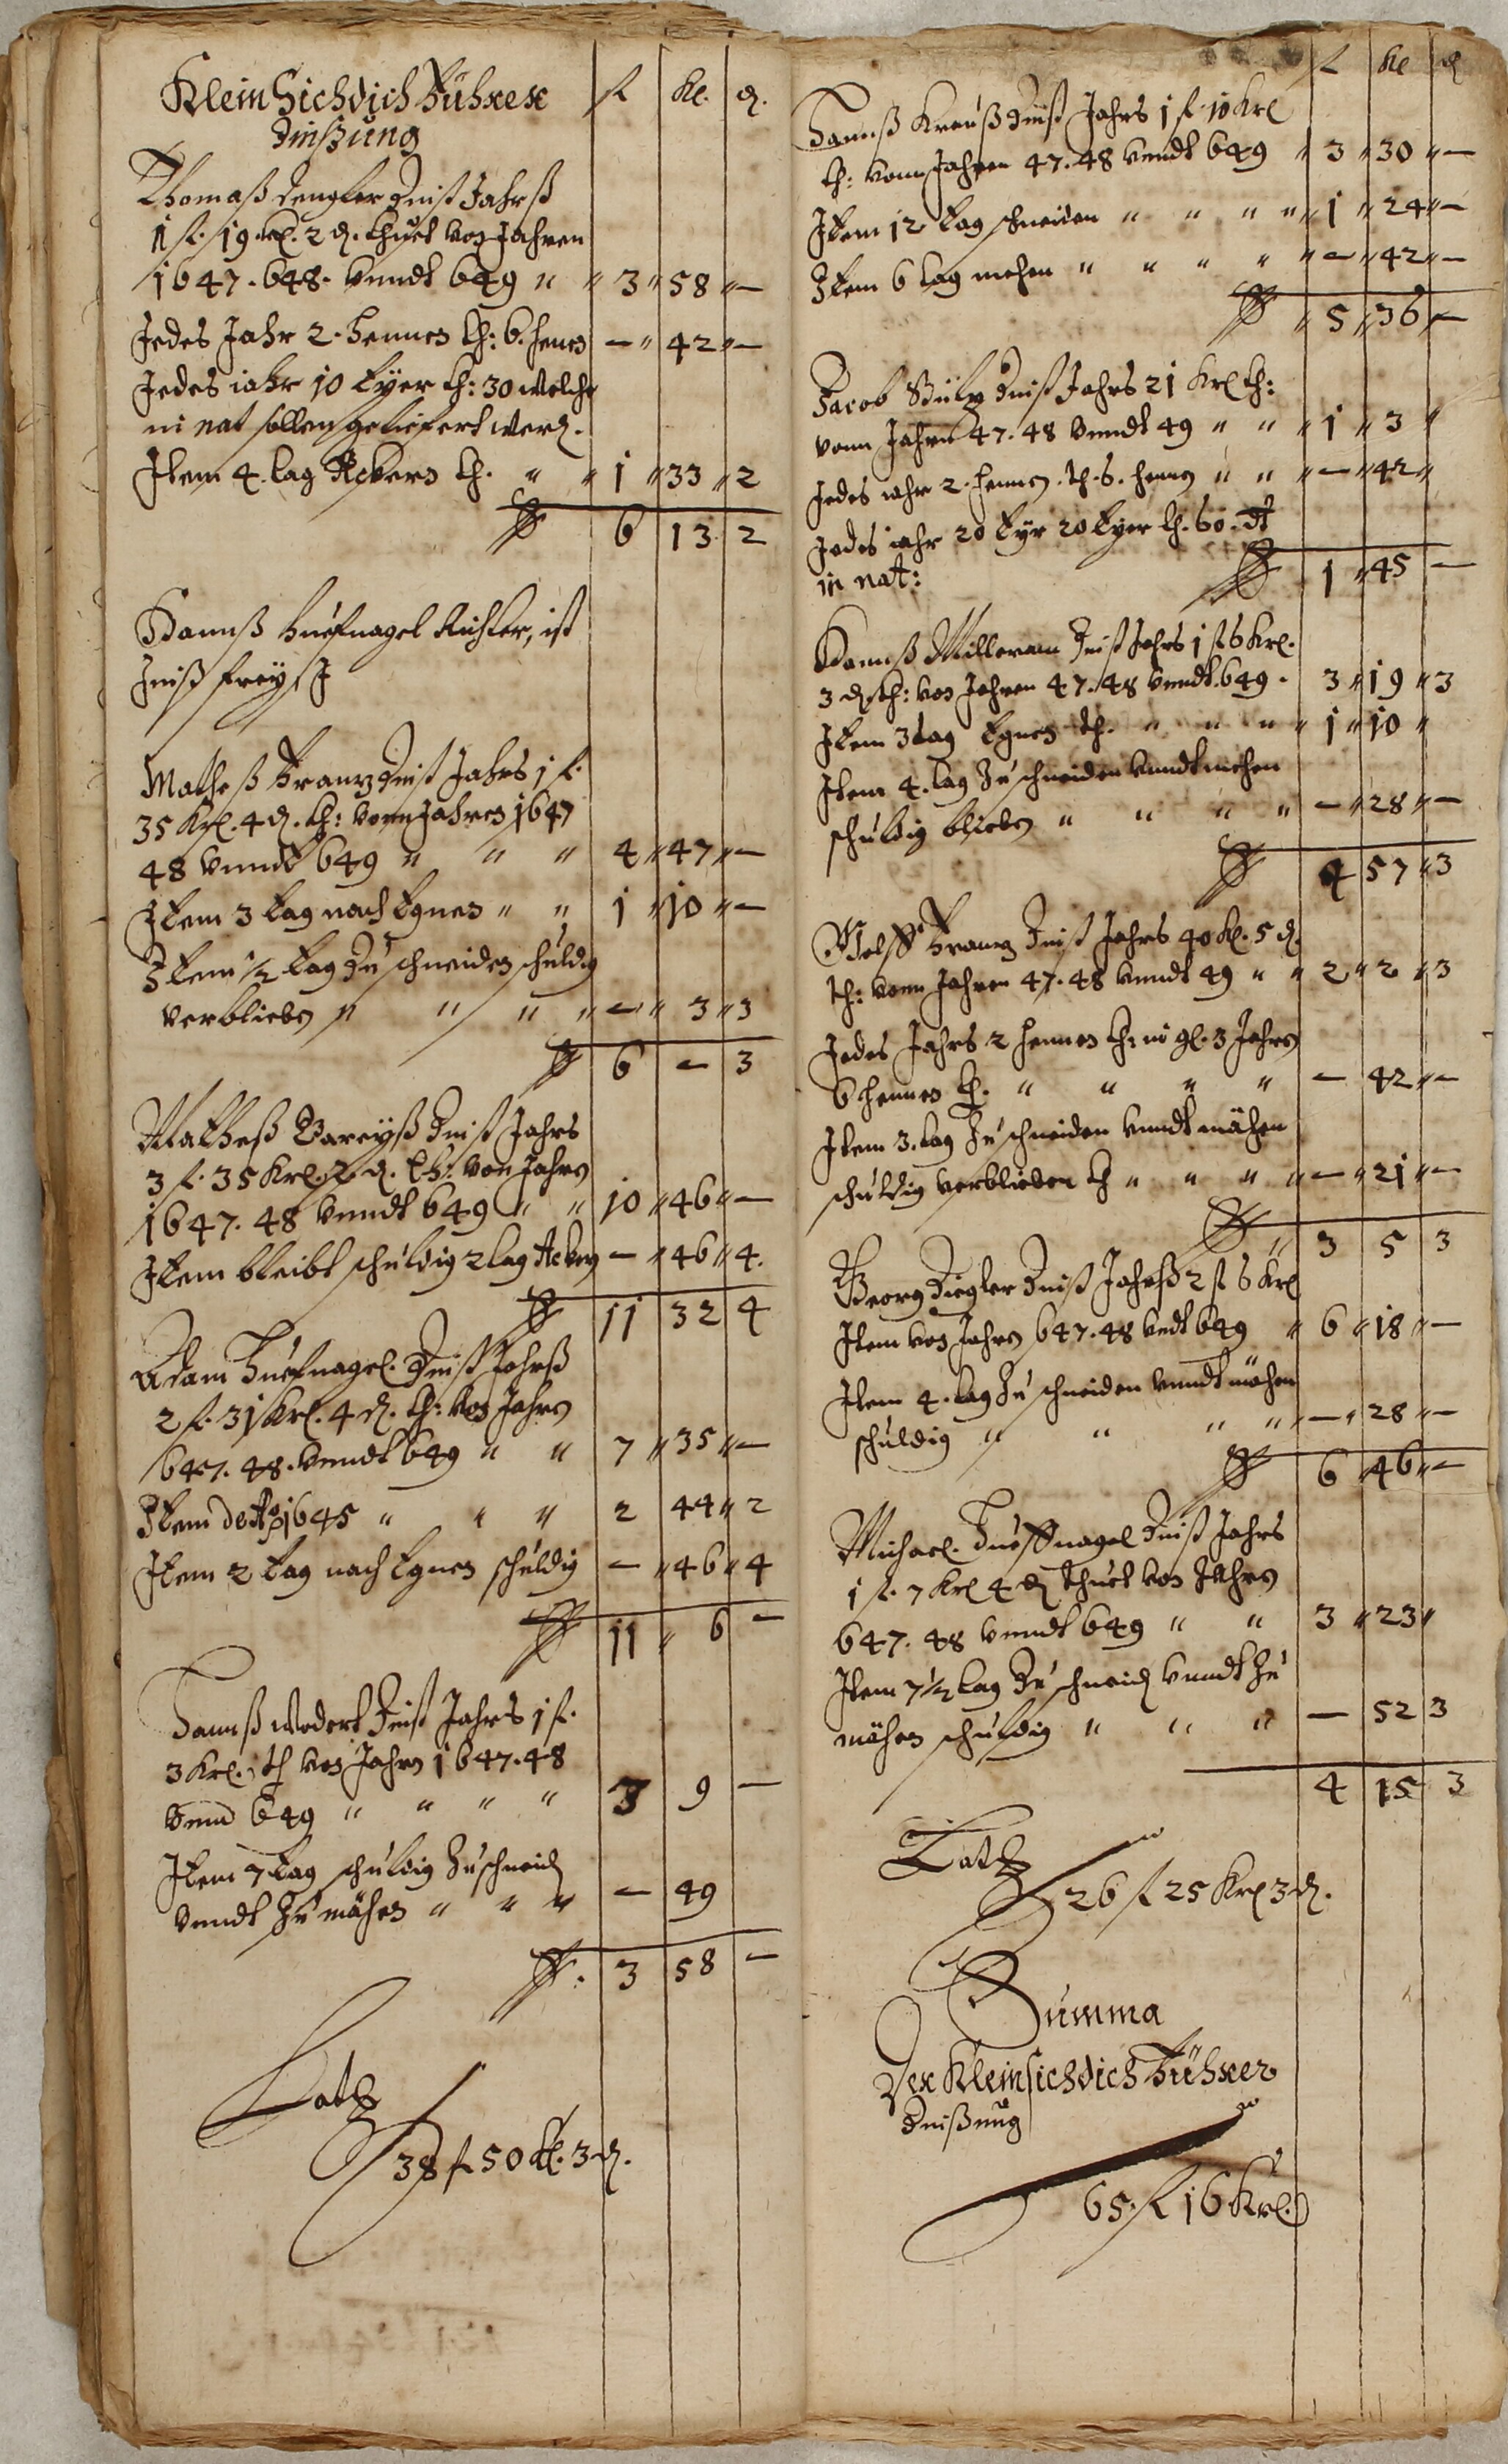 Klein Sichdich Fühxex fl Kl. d.
Zinßung
Thomaß Dengler Zinst Jahrß
1 fl. 19 Kl. 2 d. thuet von Jahren
1647. 648. vnndt 649 " " 3 " 58 " —
Jedes Jahr 2. hennen th: 6. henen — " 42 " —
Jedes iahr 10 Eÿer th: 30 welche
in nat sollen geliefert werd.
Item 4. tag Ackern th. " " 1 " 33 " 2
6 13 2
Hannß Huefnagel Richter, ist
Zinß freÿ
Matheß Franz Zinst Jahrs 1 fl.
35 Krl. 4 d. th: vonn Jahren 1647
48 vnndt 649 " " " 4 " 47 " —
Item 3 tag nach Egnen " " 1 " 10 " —
Item ½ tag Zu schneiden schuldig
verblieben " " " " — " 3 " 3
6 — 3
Matheß Zinst Jahrs
3 fl. 35 Krl. 2 d. th: von Jahren
1647. 48 vnndt 649 " " 10 " 46 " —
Item bleibt schuldig 2 tag Ackern — " 46 " 4.
11 32 4
Adam Huefnagel. Zinst Jahrß
2 fl. 31 Krl. 4 d. th: von Jahren
647. 48. vnndt 649 " " 7 " 35 " —
Item detto 1645 " " " 2 44 " 2
Item 2 tag nach Egnen schuldig — " 46 " 4
11 " 6 —
Hannß Wodert Zinst Jahrs 1 fl.
3 Krl. th von Jahren 1647. 48
vnnd 649 " " " " 3 9 —
Item 7 tag schuldig Zu schneid
vnndt Zu mähen " " " — 49
3 58 —
Latus
38 fl 50 Kl. 3 d.
fl Kl d
Hannß Krauß Zinst Jahrs 1 fl. 10 Krl
th: vonn Jahren 47. 48 vnndt 649 " 3 " 30 " —
Item 12 tag schneiden " " " " " 1 " 24 " —
Item 6 tag mehen " " " " " — " 42 " —
" 5 " 36 " —
Jacob Zinst Jahrs 21 Krl th:
vonn Jahren 47. 48 vnndt 49 " " " 1 " 3 "
Jedes iahr 2. hennen. th. 6. henen " " " — " 42 "
Jedes iahr 20 Eÿr 20 Eÿer th. 60. dt
in nat: 1 " 45 —
Hannß Zinst Jahrs 1 fl 6 Krl.
3 d th: von Jahren 47. 48 vnndt. 649. 3 " 19 " 3
Item 3 tag Egnen th. " " " " 1 " 10 "
Item 4. tag Zu schneiden vnndt mehen
schuldig blieben " " " " — " 28 " —
4 57 " 3
Wolff Franz Zinst Jahrs 40 Kl. 5 d.
th: vonn Jahren 47. 48 vnndt 49 " " 2 " 2 " 3
Jedes Jahrs 2 hennen th: in gl. 3 Jahrn
6 hennen th. " " " " — 42 " —
Item 3. tag Zu schneiden vnndt mähen
schuldig verblieben th " " " " — " 21 " —
3 5 3
Georg Ziegler Zinst Jahrß 2 fl 6 Krl
Item von Jahren 647. 48 vndt 649 " 6 " 18 " —
Item 4. tag Zu schneiden vnndt mähen
schuldig " " " " " — " 28 " —
6 46 " —
Michael. Hueffnagel Zinst Jahrs
1 fl. 7 Krl 4 d thuet von Jahren
647. 48 vnndt 649 " " 3 " 23 "
Item 7½ tag Zu schneid vnndt Zu
mähen schuldig " " " — 52 3
4 15 3
Latus
26 fl 25 Krl 3 d.
Summa
Dex Kleinsichdich Fühxer
Zinßung
65. fl 16 Krl.